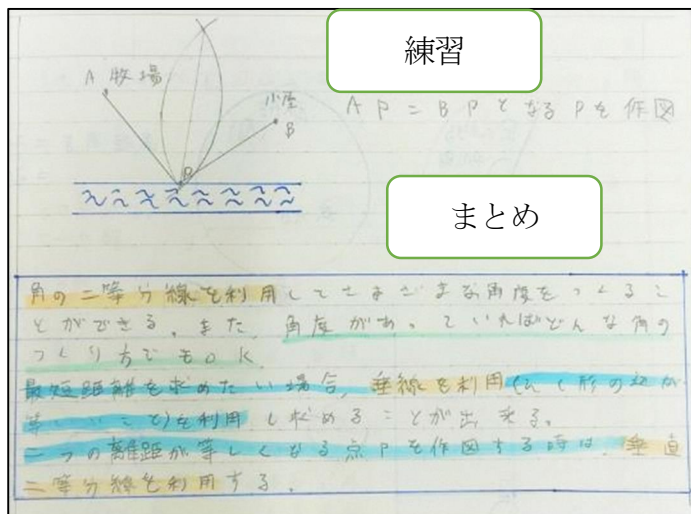 練習
A 牧場
小屋
B
AP=BPとなるPを作図
P
まとめ
角の二等分線を利用してさまざまな角度をつくるこ
とができる。また、角度があっていればどんな角の
つくり方でもOK
最短距離を求めたい場合、垂線を利用(ひし形の辺が
等しいこと)を利用し求めることが出来る。
二つの離距が等しくなる点Pを作図する時は、垂直
二等分線を利用する。